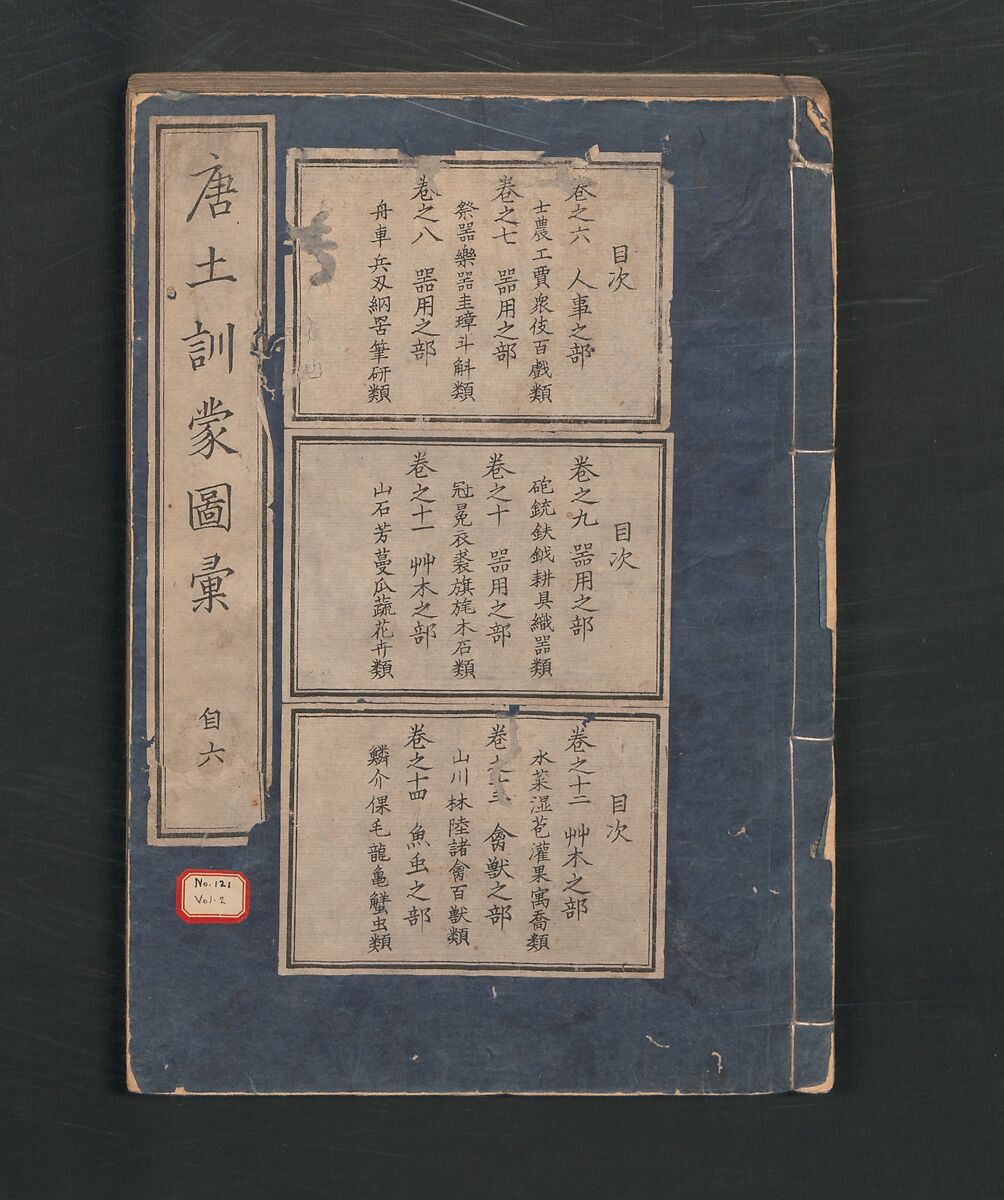 唐土訓蒙圖彙
自六
目次
卷之六 人事之部
士農工賈衆伎百戲類
卷之七 器用之部
祭器樂器圭璋斗斛類
卷之八 器用之部
舟車兵刄網罟筆研類
目次
卷之九 器用之部
砲銃鈇鉞耕具織器類
卷之十 器用之部
冠冕衣裘旗旄木石類
卷之十一 艸木之部
山石芳蔓瓜蔬花卉類
目次
卷之十二 艸木之部
水菜湿苞灌果寓喬類
卷之十三 禽獸之部
山川林陸諸禽百獸類
卷之十四 魚虫之部
鱗介倮毛龍亀蠵虫類
No. 121
Vol. 2